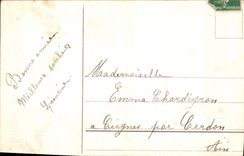 Bonne année
Meilleurs
Mademoiselle
Emma Chardeyron
à Cignes par Cerdon
Ain